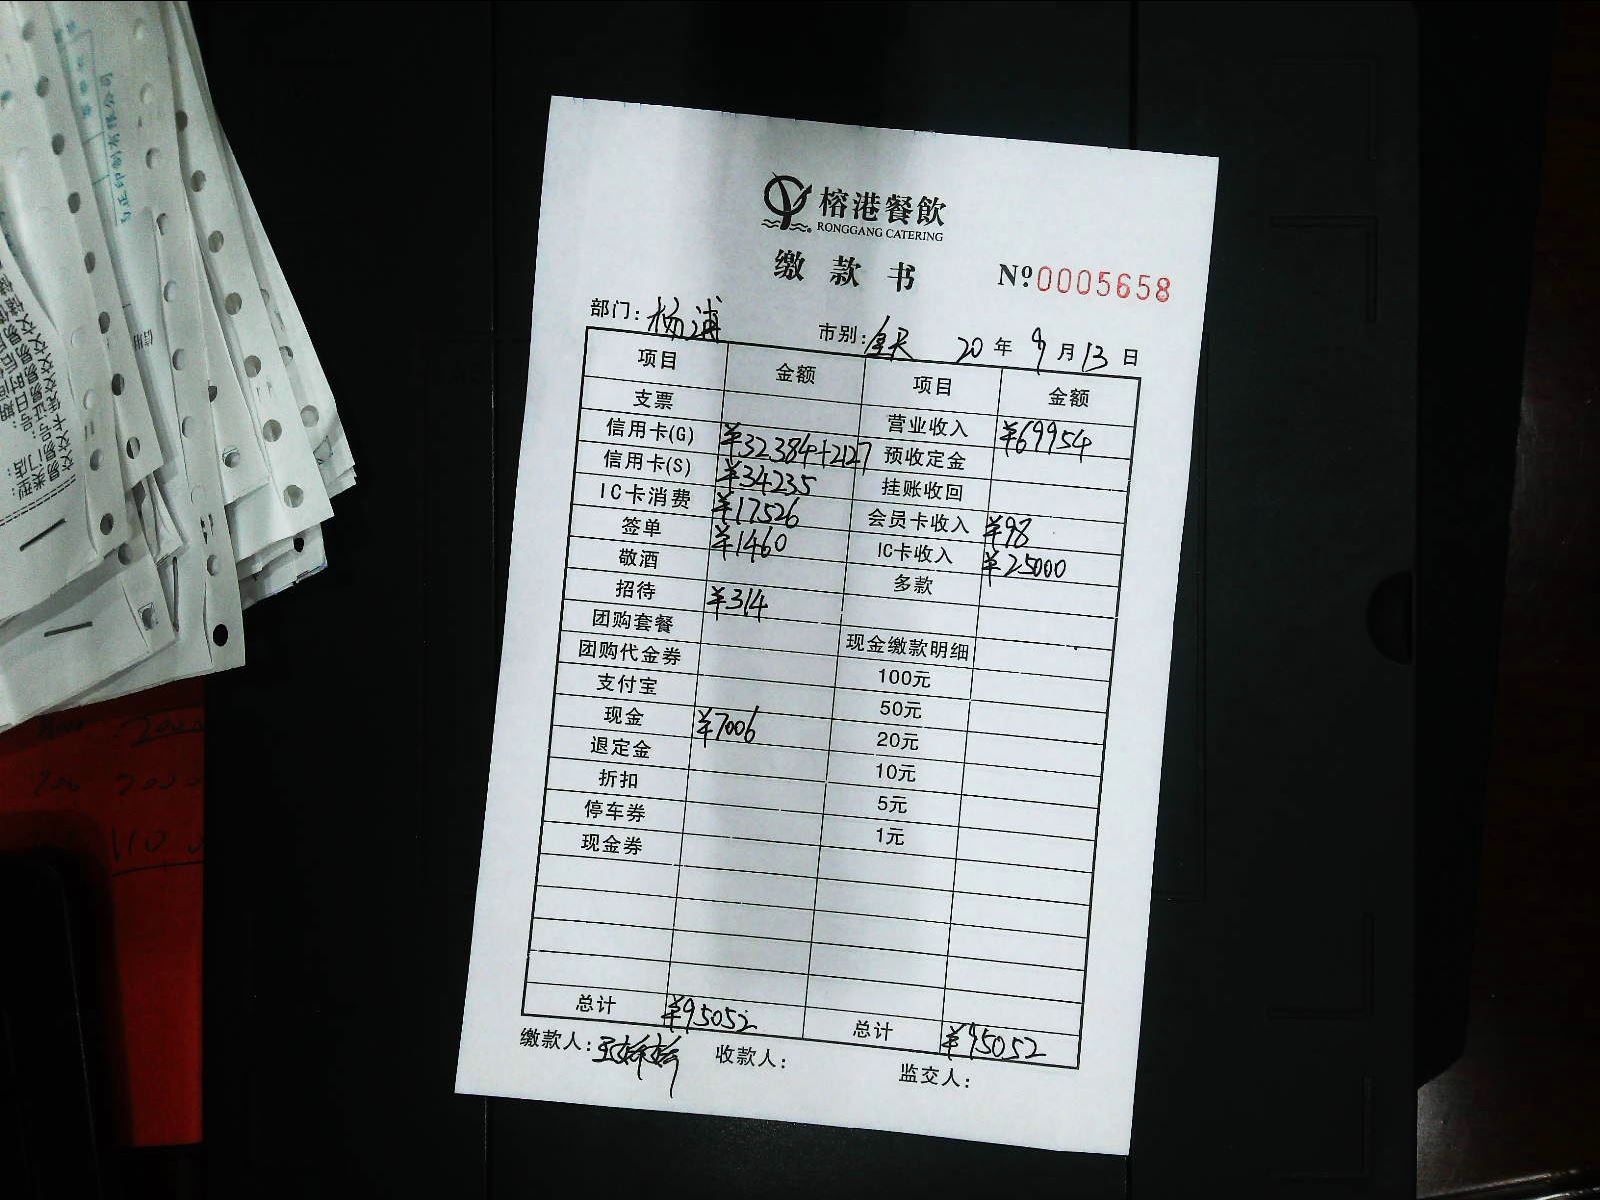 榕港餐飲
RONGGANG CATERING
缴款书 Nº 0005658
部门: 杨浦 市别: 全天 20年9月13日
项目 金额 项目 金额
支票 营业收入 ¥69954
信用卡(G) ¥32384+2127 预收定金
信用卡(S) ¥34235 挂账收回
IC卡消费 ¥17526 会员卡收入 ¥98
签单 ¥1460 IC卡收入 ¥25000
敬酒 多款
招待 ¥314
团购套餐 现金缴款明细
团购代金券 100元
支付宝 50元
现金 ¥7006 20元
退定金 10元
折扣 5元
停车券 1元
现金券
总计 ¥95052 总计 ¥95052
缴款人: 收款人: 监交人: